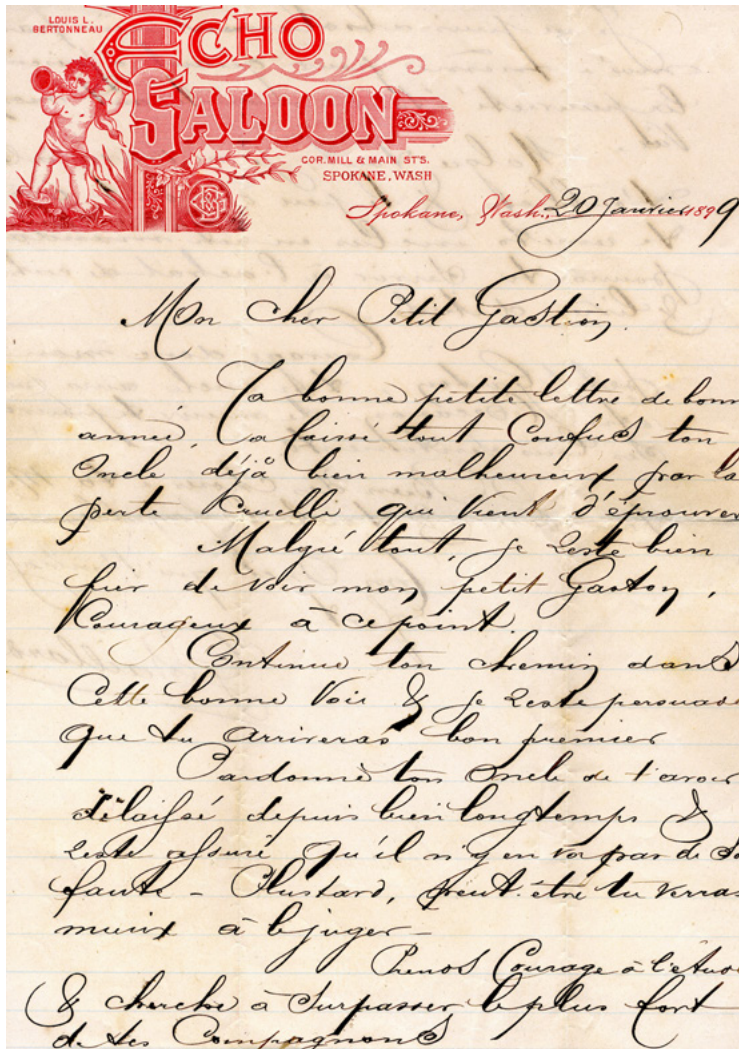 LOUIS L.
BERTONNEAU
ECHO
SALOON
COR. MILL & MAIN ST'S.
SPOKANE, WASH
Spokane, Wash., 20 Janvier 1899
Mon cher Petit Gaston,
Ta bonne petite lettre de bonn
année, a laissé tout Confus ton
Oncle déjà bien malheureux par la
perte Cruelle qui vient d'éprouver
Malgré tout, je reste bien
fier de voir mon petit Gaston,
Courageux à ce point.
Continue ton chemin dans
Cette bonne voie & je reste persuadé
que tu arriveras bon premier
Pardonne ton Oncle de t'avoir
délaissé depuis bien longtemps &
reste assuré qu'il n'y en va pas de sa
faute - Plustard, peut-être tu verras
mieux à le juger -
Prends Courage à l'étude
& cherche à Surpasser le plus fort
de tes Compagnons